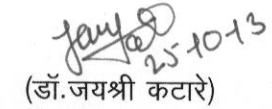 25-10-13
(डॉ.जयश्री कटारे)